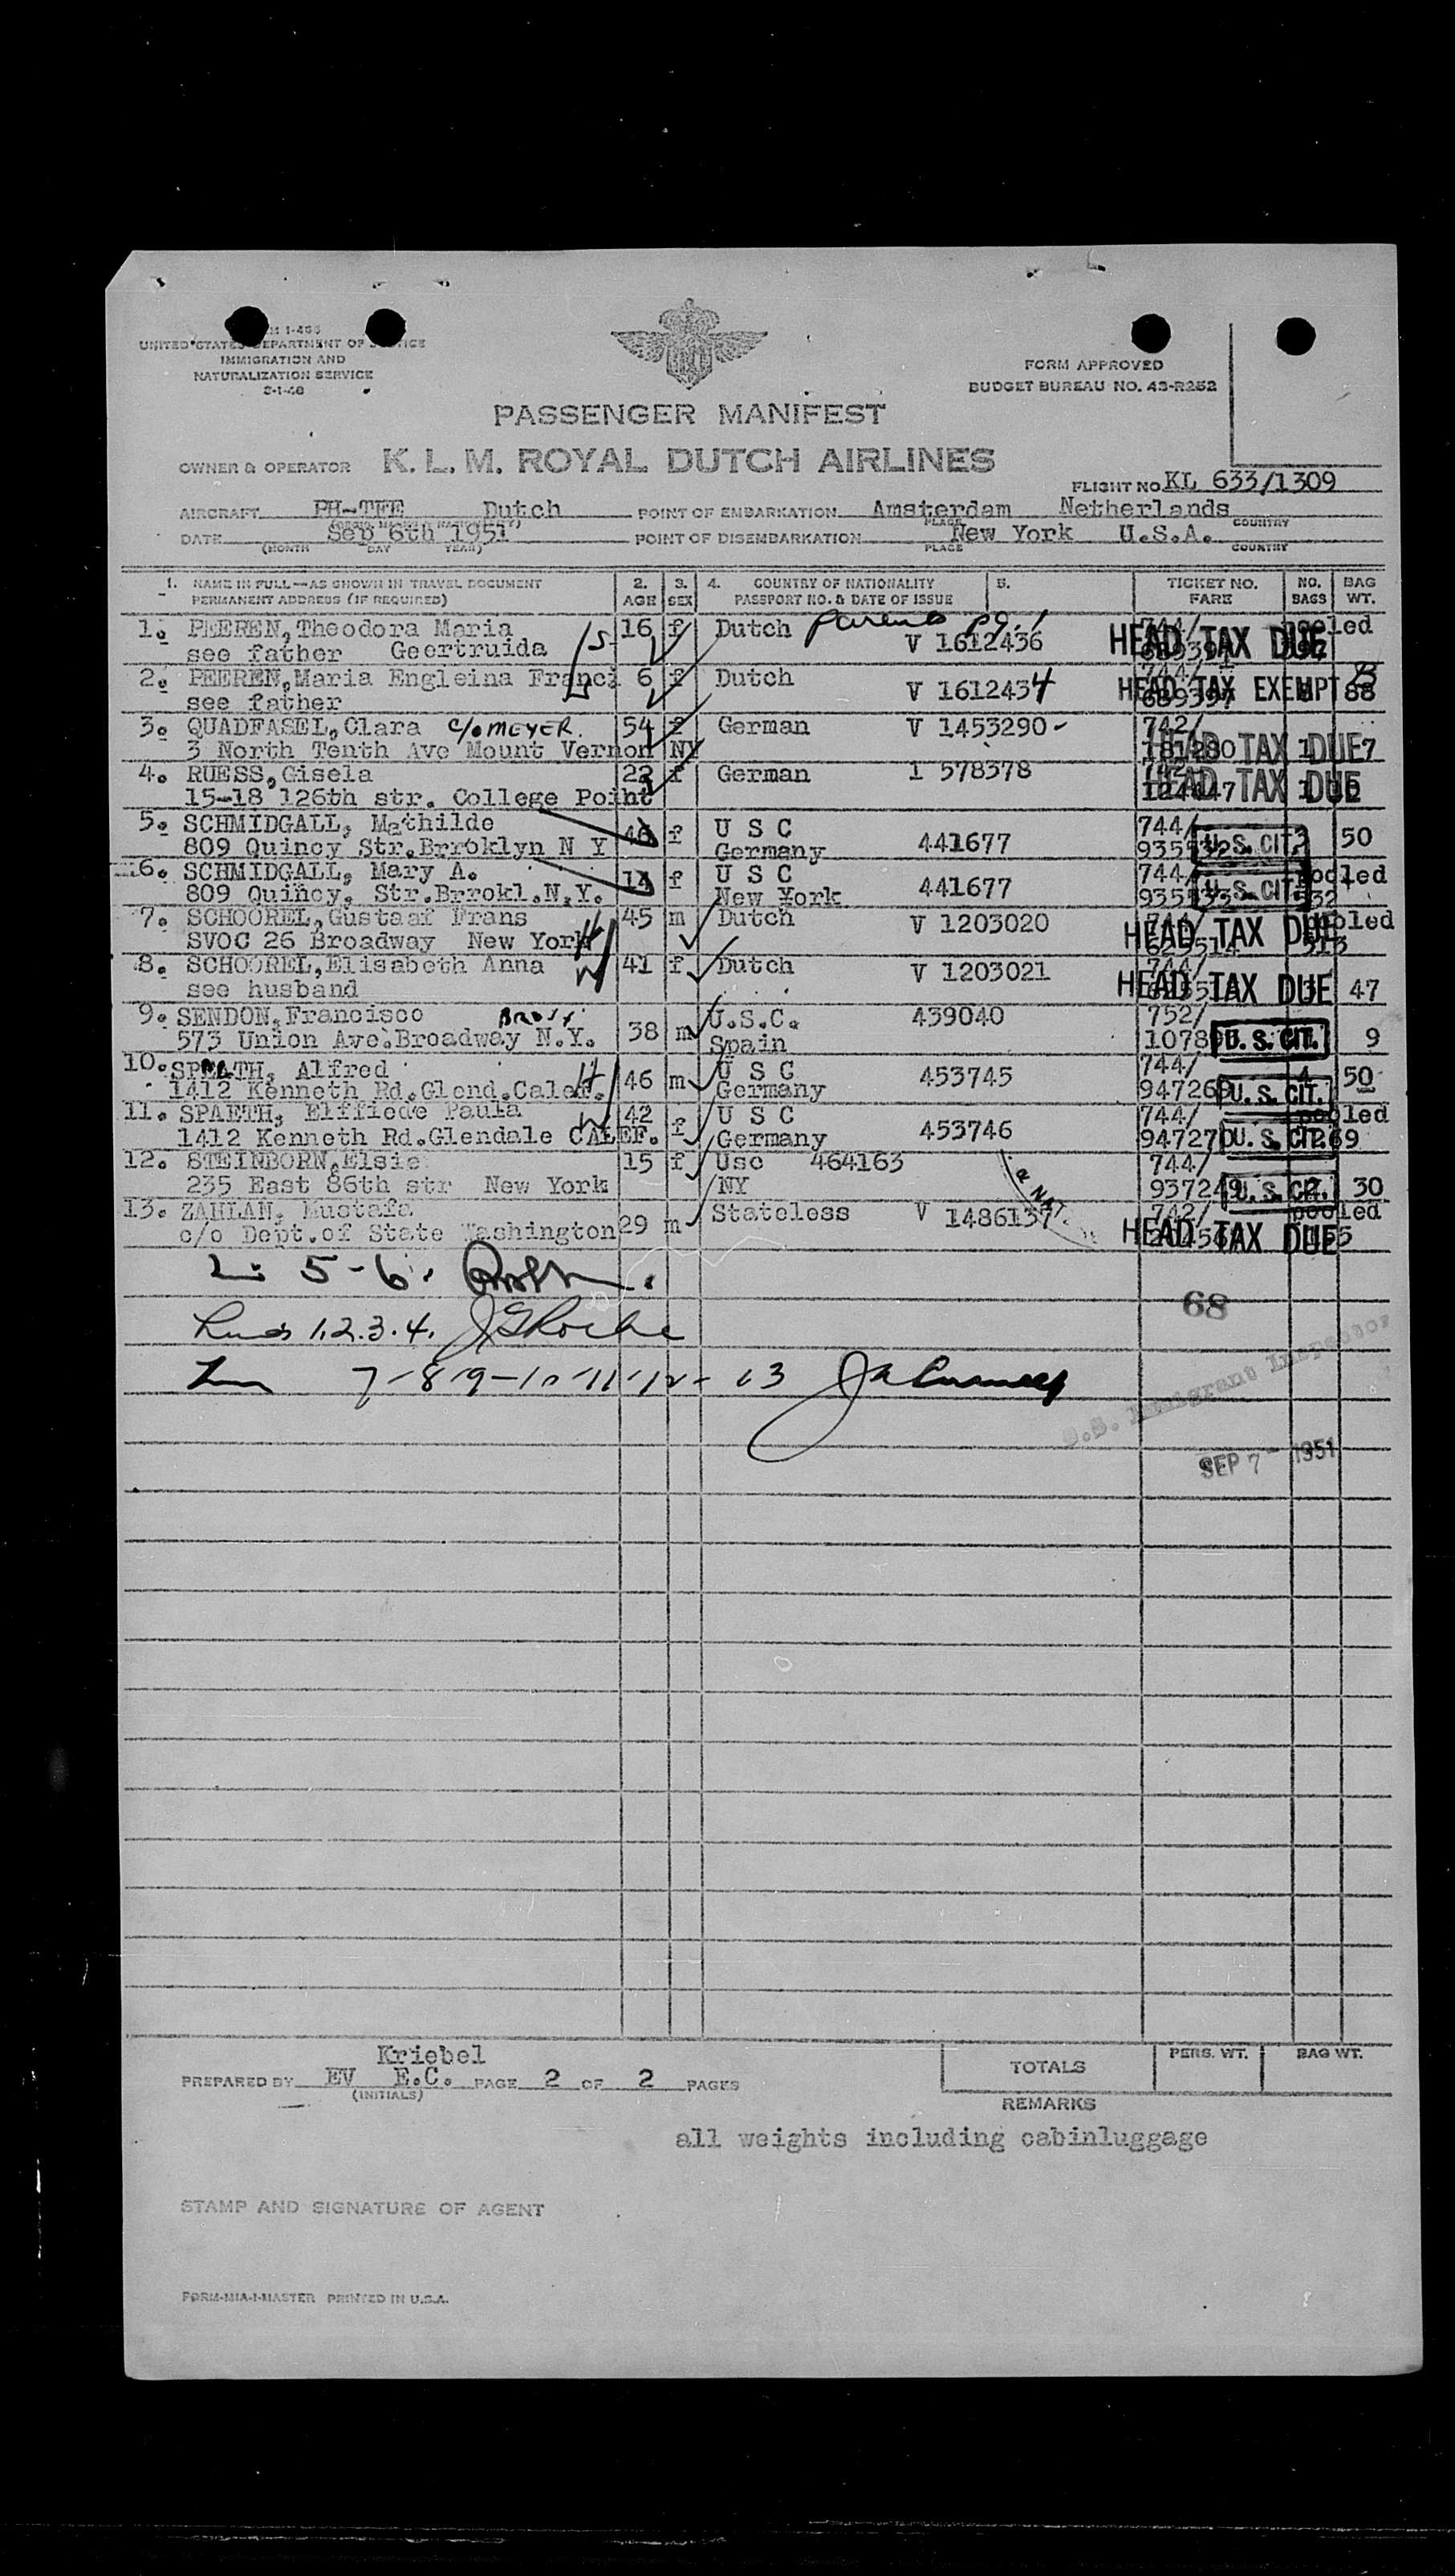 UNITED STATES DEPARTMENT OF JUSTICE
IMMIGRATION AND
NATURALIZATION SERVICE
FORM APPROVED
BUDGET BUREAU NO. 43-R252
PASSENGER MANIFEST
OWNER & OPERATOR K. L. M. ROYAL DUTCH AIRLINES
FLIGHT NO. KL 633/1309
AIRCRAFT PH-TEE Dutch POINT OF EMBARKATION Amsterdam Netherlands
PLACE COUNTRY
DATE Sep 6th 1951 POINT OF DISEMBARKATION New York U.S.A.
(MONTH DAY YEAR) PLACE COUNTRY
1. NAME IN FULL—AS SHOWN IN TRAVEL DOCUMENT 2. 3. 4. COUNTRY OF NATIONALITY 5. TICKET NO. NO. BAG
PERMANENT ADDRESS (IF REQUIRED) AGE SEX PASSPORT NO. & DATE OF ISSUE FARE BAGS WT.
1. PEEREN, Theodora Maria 16 f Dutch Parents pg. 1 744/ pooled
see father Geertruida V 1612436 HEAD TAX DUE
2. PEEREN, Maria Engleina Franci 6 f Dutch V 1612434 744/ HEAD TAX EXEMPT 88
see father
3. QUADFASEL, Clara C/o MEYER. 54 f German V 1453290- 742/
3 North Tenth Ave Mount Vernon NY HEAD TAX DUE
4. RUESS, Gisela f German 1 578378
15-18 126th str. College Point HEAD TAX DUE
5. SCHMIDGALL, Mathilde f U S C 441677 744/ U. S. CIT. 50
809 Quincy Str.Brroklyn N Y Germany
6. SCHMIDGALL, Mary A. 14 f U S C 441677 744/ pooled
809 Quincy, Str.Brrokl.N.Y. New York U. S. CIT.
7. SCHOOREL, Gustaaf Frans 45 m Dutch V 1203020 pooled
SVOC 26 Broadway New York HEAD TAX DUE
8. SCHOOREL, Elisabeth Anna 41 f Dutch V 1203021 744/
see husband HEAD TAX DUE 47
9. SENDON, Francisco 38 m U.S.C. 439040 752/
573 Union Ave.Broadway N.Y. Spain U. S. CIT. 9
10. SPAETH, Alfred 46 m U S C 453745 744/ 50
1412 Kenneth Rd.Glend.Calef. Germany U. S. CIT.
11. SPAETH, Elffiede Paula 42 f U S C 453746 744/ pooled
1412 Kenneth Rd.Glendale CALEF. Germany U. S. CIT.
12. STEINBORN, Elsie 15 f Usc 464163 744/
235 East 86th str New York NY U. S. CIT. 30
13. ZAHLAN, Mustafa 29 m Stateless V 1486137 742/ pooled
c/o Dept.of State Washington HEAD TAX DUE
5-6.
68
Lines 1.2.3.4.
7-8-9-10-11-12-13
U.S. Immigrant Inspector
SEP 7 - 1951
Kriebel
PREPARED BY EV E.C. PAGE 2 OF 2 PAGES
(INITIALS)
TOTALS PERS. WT. BAG WT.
REMARKS
all weights including cabinluggage
STAMP AND SIGNATURE OF AGENT
FORM-MIA-1-MASTER PRINTED IN U.S.A.